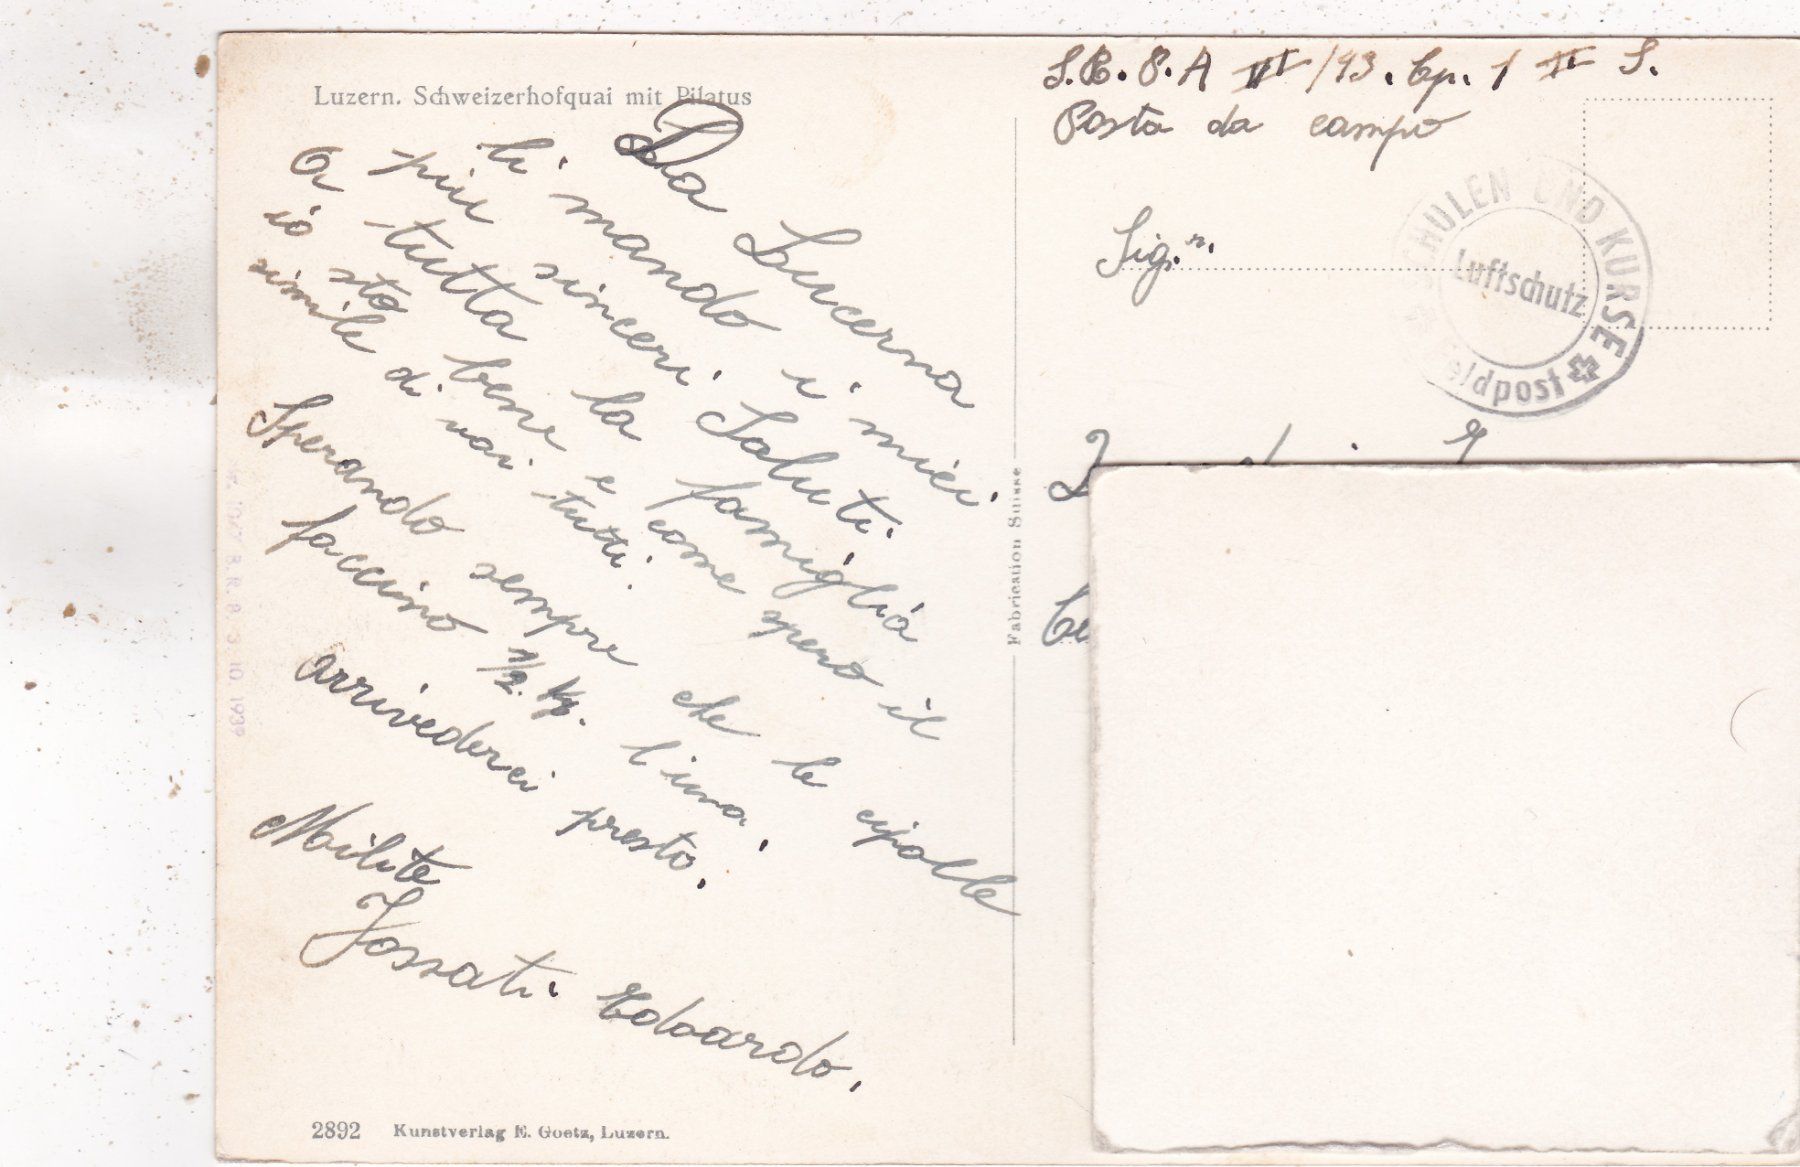 Luzern. Schweizerhofquai mit Pilatus
Da Lucerna
ti mando i miei
più sinceri Saluti.
a tutta la famiglia
io sto bene e come spero il
simile di voi tutti.
Sperando sempre che le cipolle
faccino 1/2 Kg. l'una.
arrivederci presto.
Milite
Fossati Edoardo.
2892 Kunstverlag E. Goetz, Luzern.
Fabrication Suisse
S.R.P.A III/43. Cp. 1 II S.
Posta da campo
Sig.r.
SCHULEN UND KURSE
Luftschutz
Feldpost
B. R. 8. 3. 10. 1939